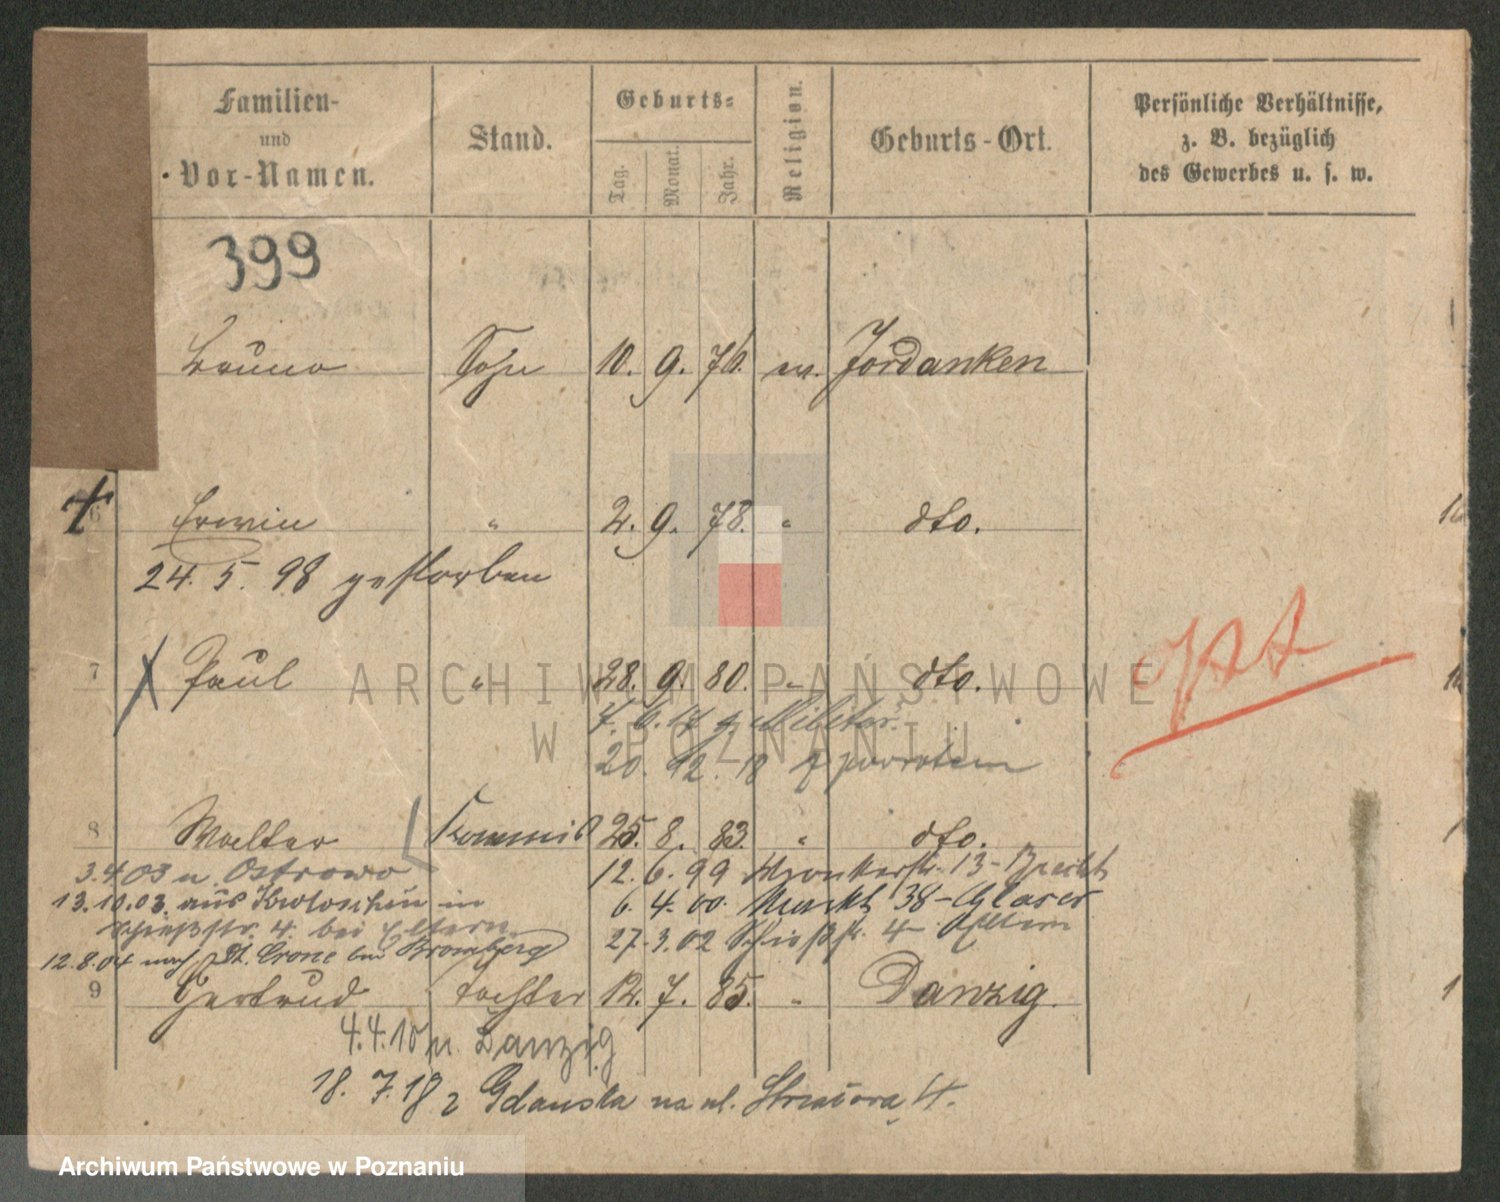 Familien- und Vor-Namen.
Stand.
Geburts-
Tag.
Monat.
Jahr.
Religion.
Geburts-Ort.
Persönliche Verhältnisse,
z. B. bezüglich
des Gewerbes u. s. w.
399
Bruno Sohn 10. 9. 76. ev. Jordanken
6 Erwin " 2. 9. 78. " dto.
24. 5. 98 gestorben
7 Paul " 28. 9. 80. " dto.
7. 6. 17 z. Militär.
20. 12. 18 z powrotem
8 Walter Kommis 25. 8. 83. " dto.
3.4.03 n. Ostrowo
12. 6. 99 13-
13.10.03. aus Krotoschin in
6. 4. 00. Markt 38 - Glaser
Schießstr. 4. bei Eltern
27. 3. 02 Schießstr. 4 - Eltern
12.8.04 nach Dt. Crone bei Bromberg
9 Gertrud Tochter 12. 7. 85. " Danzig.
4.4.10 n. Danzig
18. 7. 18 z Gdańska na ul. 4.
ARCHIWUM PAŃSTWOWE
W POZNANIU
Archiwum Państwowe w Poznaniu